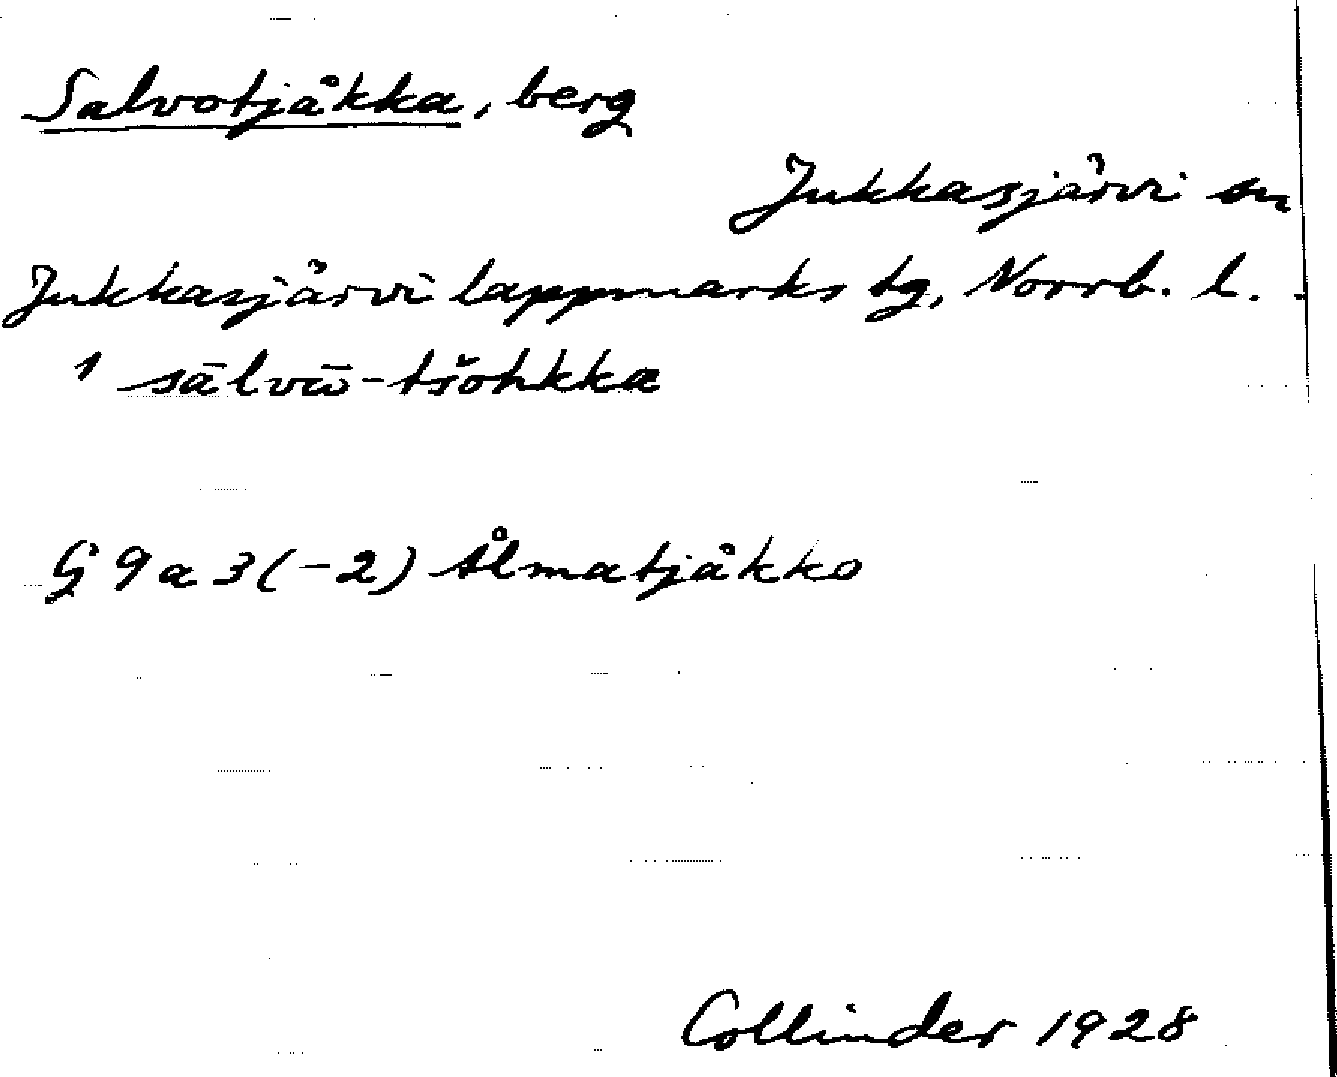 Salvotjåkka, berg
Jukkasjärvi sn
Jukkasjärvi lappmarks tg, Norrb. l.
1 sālvō-tšohkka
G 9 a 3 (-2) Ålmatjåkko
Collinder 1928